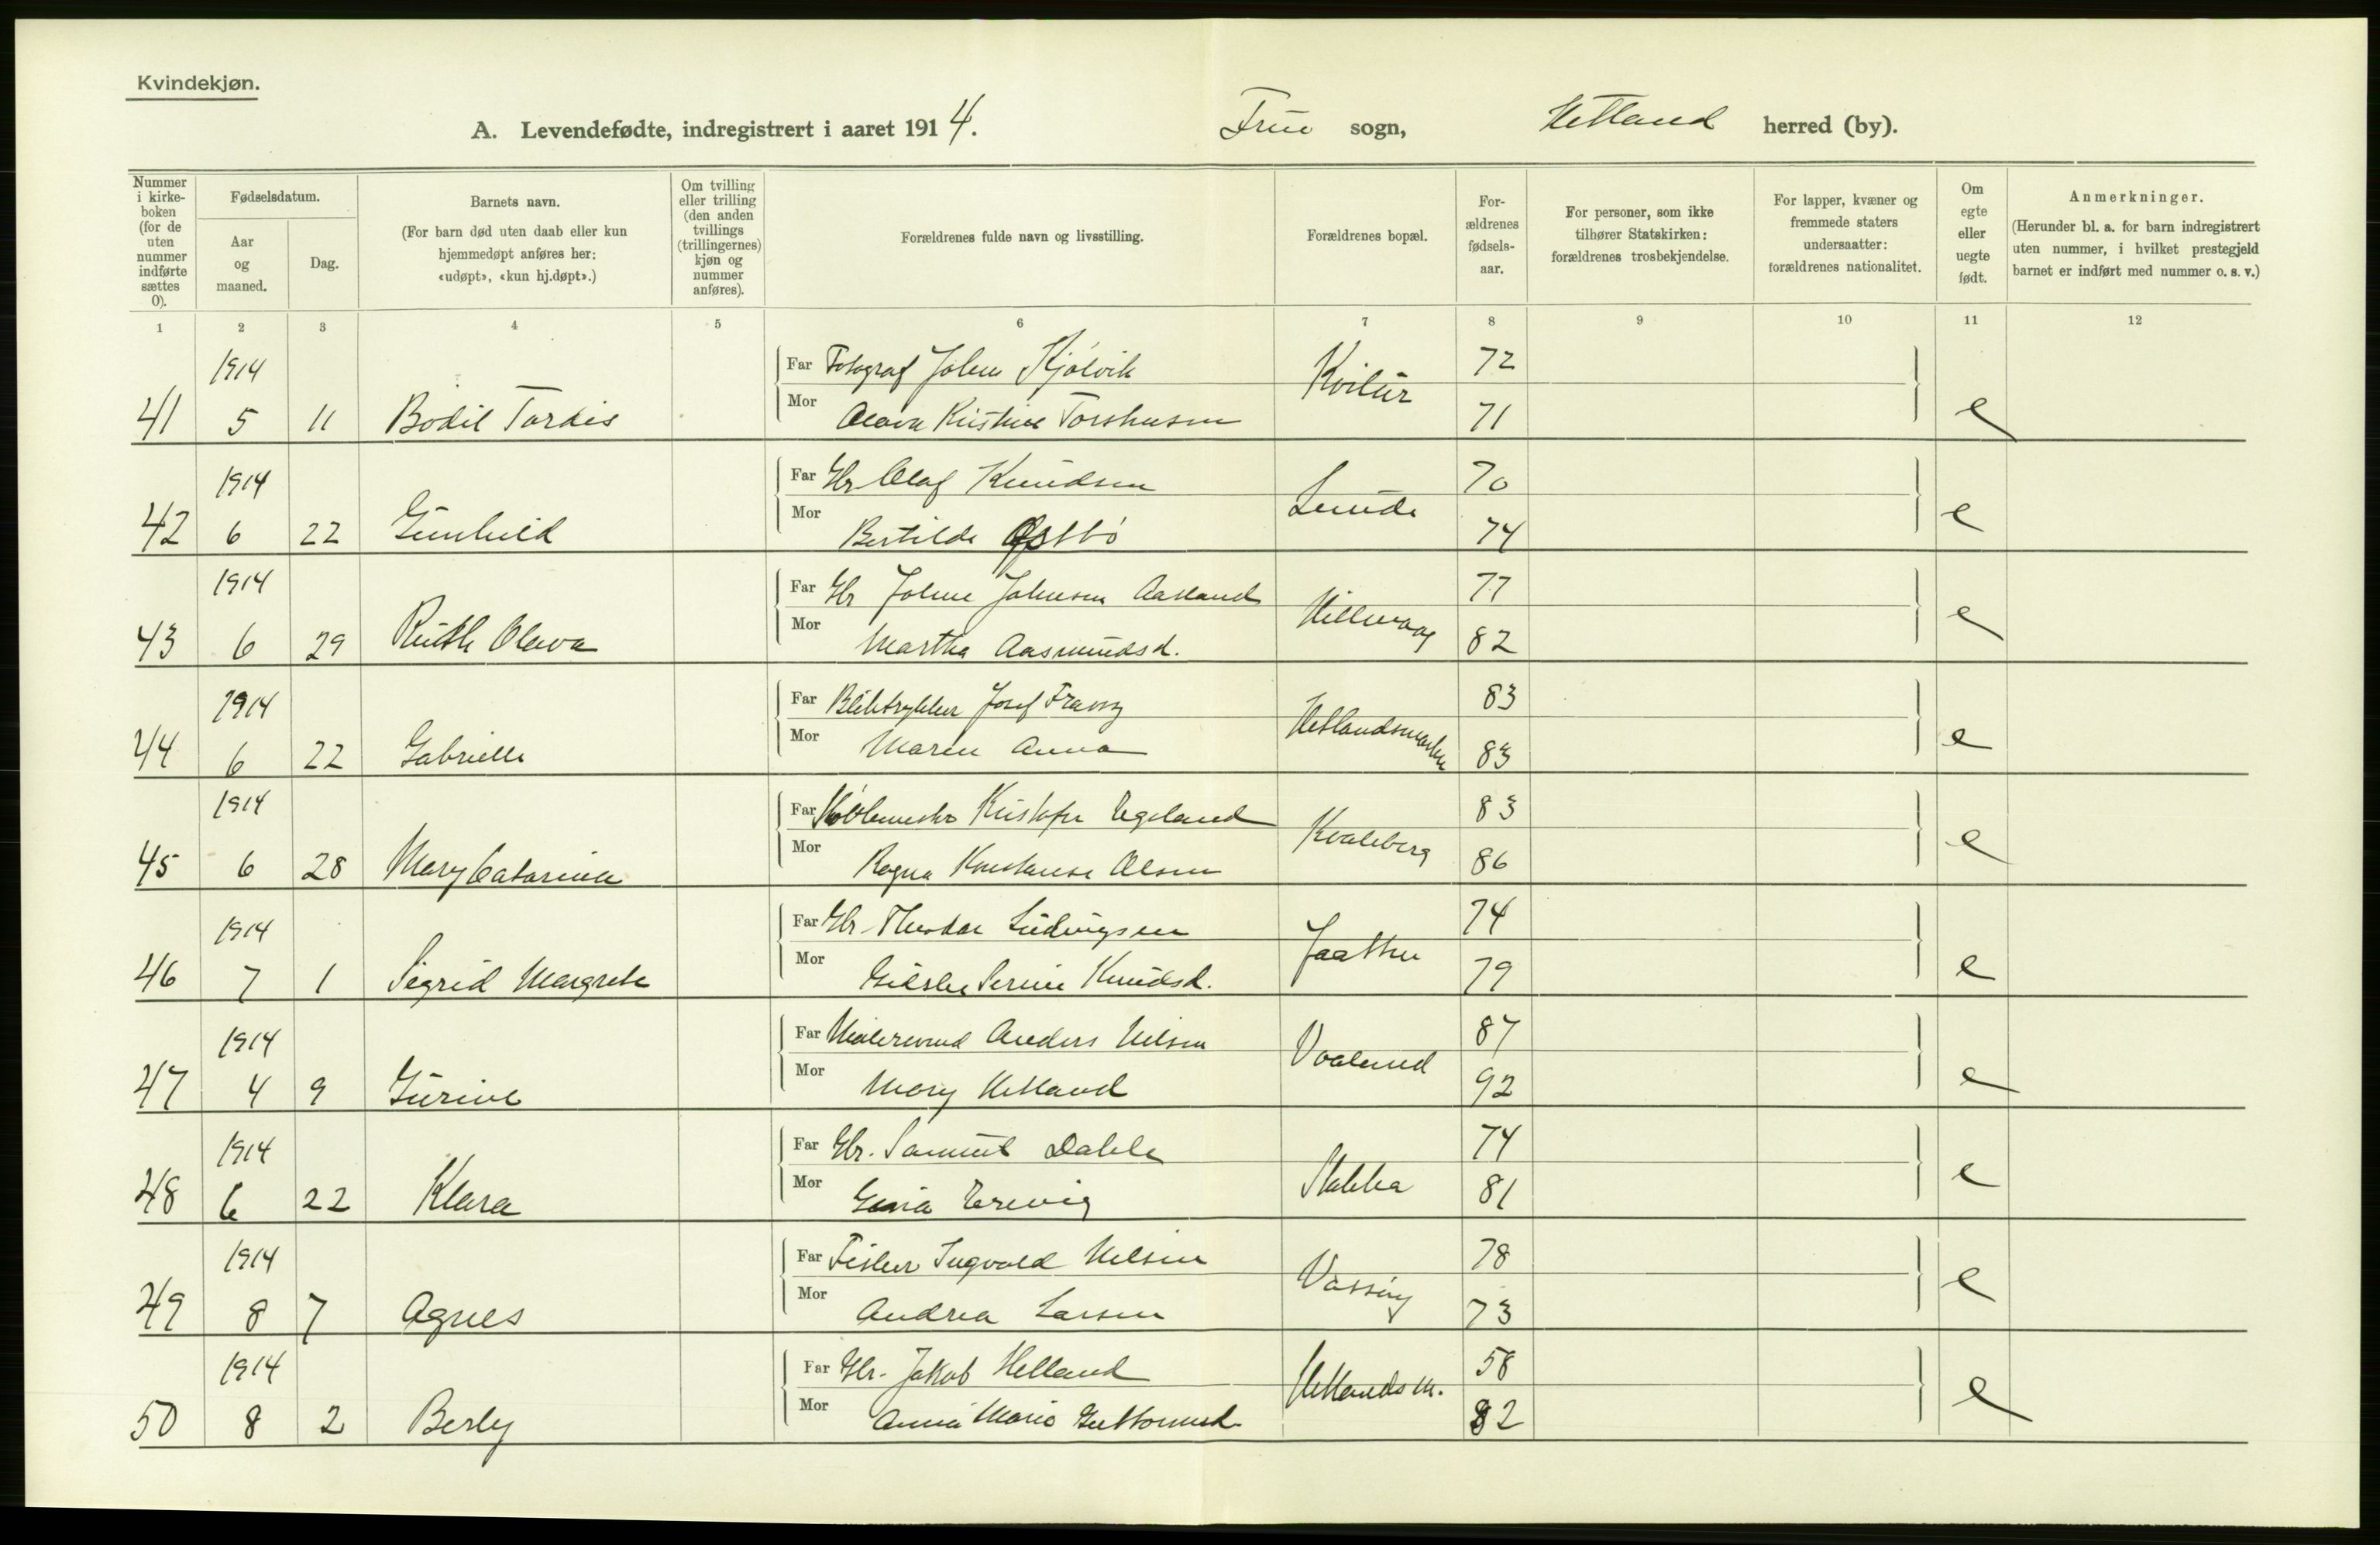 Kvindekjøn.
A. Levendefødte, indregistrert i aaret 1914. Frue sogn, Hetland herred (by).
Nummer i kirkeboken (for de uten nummer indførte sættes 0).
Fødselsdatum.
Aar og maaned.
Dag.
Barnets navn.
(For barn død uten daab eller kun hjemmedøpt anføres her: «udøpt», «kun hj.døpt».)
Om tvilling eller trilling (den anden tvillings (trillingernes) kjøn og nummer anføres).
Forældrenes fulde navn og livsstilling.
Forældrenes bopæl.
Forældrenes fødselsaar.
For personer, som ikke tilhører Statskirken: forældrenes trosbekjendelse.
For lapper, kvæner og fremmede staters undersaatter: forældrenes nationalitet.
Om egte eller uegte født.
Anmerkninger.
(Herunder bl. a. for barn indregistrert uten nummer, i hvilket prestegjeld barnet er indført med nummer o. s. v.)
1 2 3 4 5 6 7 8 9 10 11 12
1914 Far Fotograf John Kjølvik Kvilür 72
41 5 11 Bodil Tordis Mor Olava Kristine Torshusen 71 e
1914 Far Gbr Olaf Knudsen Lunde 70
42 6 22 Gunhild Mor Bertilde Østbö 74 e
1914 Far Gbr Johne Johnsen Aasland Hillevaag 77
43 6 29 Ruth Oleva Mor Martha Aasmundsd. 82 e
1914 Far Josef Franz Hetlandsmarken 83
44 6 22 Gabrielle Mor Maren Anna 83 e
1914 Far Kristofer Egeland Kvaleberg 83
45 6 28 Mary Catarina Mor Ragna Konstanse Olsen 86 e
1914 Far Gbr. Theodor Ludvigsen Jaatten 74
46 7 1 Sigrid Margrete Mor Serine Knudsd. 79 e
1914 Far Anders Nilsen Vaalund 87
47 4 9 Gurine Mor Mary Hetland 92 e
1914 Far Gbr. Samuel Dahle Stokka 74
48 6 22 Klara Mor Gina Erevig 81 e
1914 Far Fisker Ingvald Nilsen Vassöy 78
49 8 7 Agnes Mor Andrea Larsen 73 e
1914 Far Gbr. Jakob Helland Hetlands m. 58
50 8 2 Berly Mor Anna Marie Guttormsd. 82 e